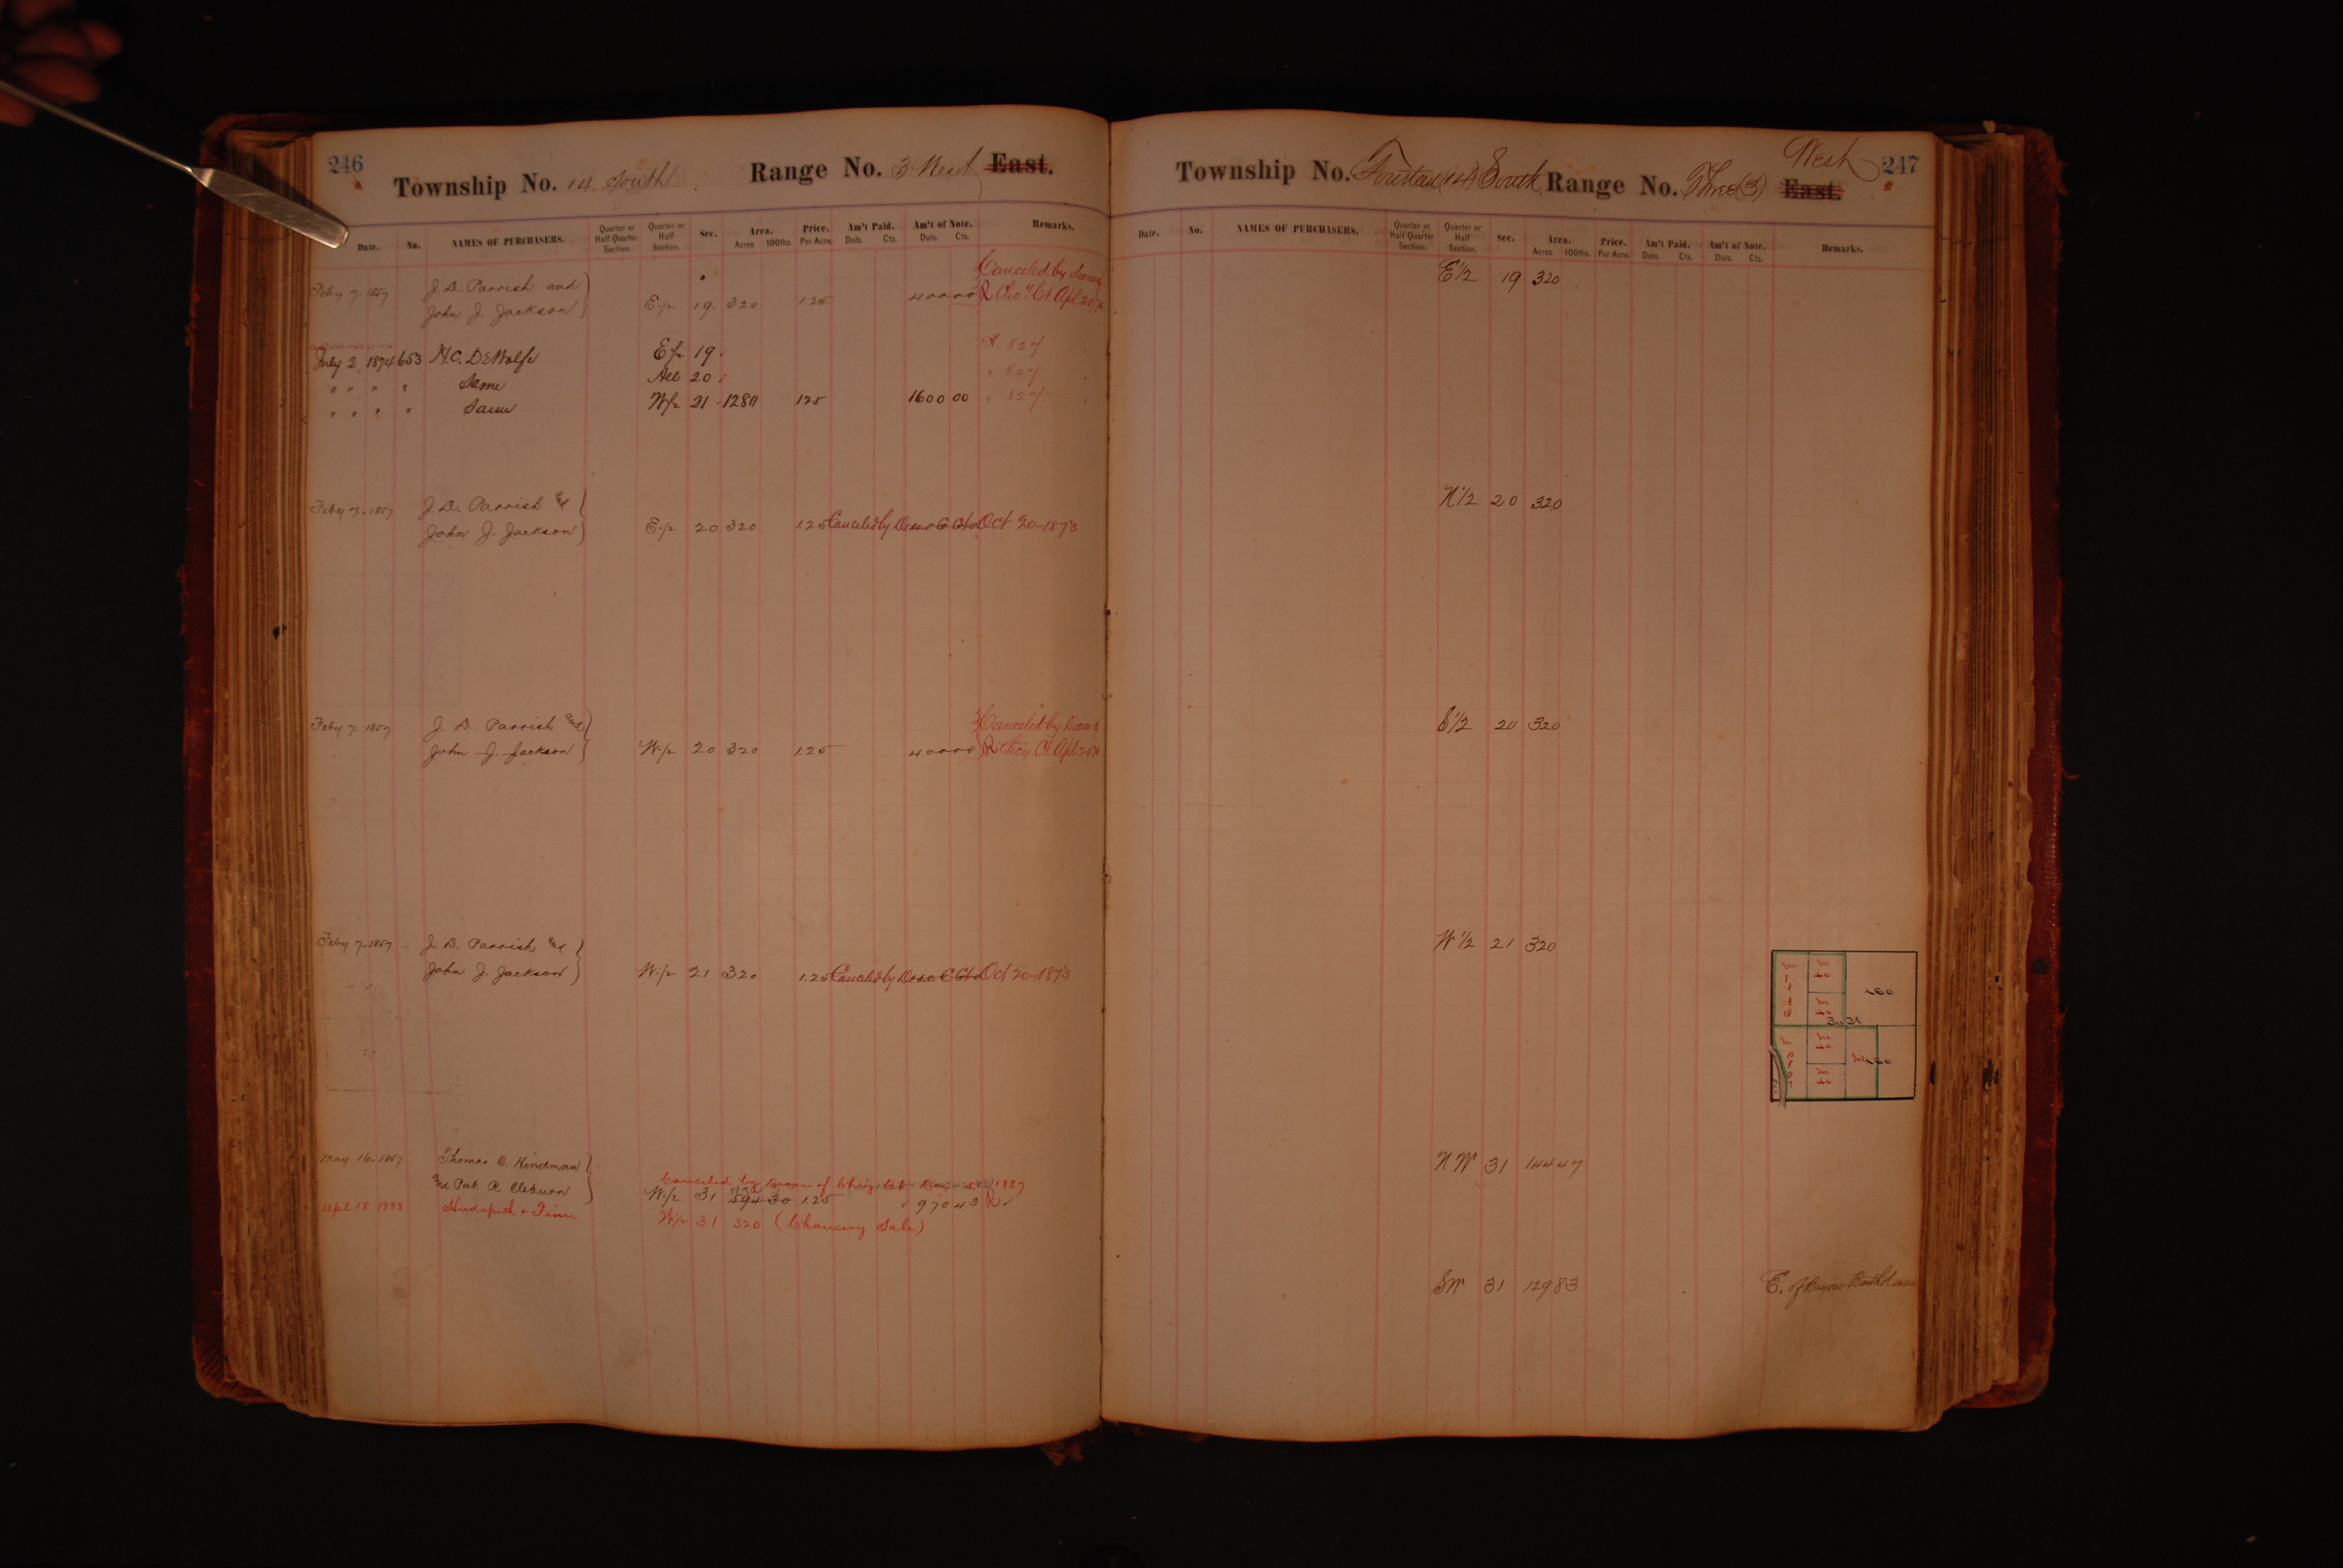 246
Township No. 14 South Range No. 3 West East.
Date. No. NAMES OF PURCHASERS. Quarter or Half Quarter Section. Quarter or Half Section. Sec. Area. Acres 100ths. Price. Per Acre. Am't Paid. Dols. Cts. Am't of Note. Dols. Cts. Remarks.
Canceled by
Feby 7. 1857 J. D. Parrish and
John J. Jackson E½ 19. 320 1.25 400 00 R Ct. Apl
July 2, 1874 653 H.C. DeWolfe E½ 19 827
" " " " Same All 20 " 827
" " " " Same W½ 21 1280 125 1600 00 " 827
Feby 7. 1857 J. D. Parrish and
John J. Jackson E½ 20 320 1.25 Canceled by Oct 20-1873
Feby 7. 1857 J. D. Parrish and Canceled by
John J. Jackson W½ 20 320 1.25 400 00 R Ct. Apl
Feby 7. 1857 J. D. Parrish and
John J. Jackson W½ 21 320 1.25 Canceled by Oct 20-1873
May 16. 1857 Thomas C. Hindman
and Pat. R. Cleburn Canceled by Decree of Chcy. Ct 1887
W½ 31 1.25 970 43 R
Apl 18 1888 W½ 31 320 (Chancery Sale)
247
Township No. Fourteen (14) South Range No. Three (3) West East.
Date. No. NAMES OF PURCHASERS. Quarter or Half Quarter Section. Quarter or Half Section. Sec. Area. Acres 100ths. Price. Per Acre. Am't Paid. Dols. Cts. Am't of Note. Dols. Cts. Remarks.
E½ 19 320
N½ 20 320
S½ 20 320
W½ 21 320
160
160
NW 31 144 47
SW 31 129 83 E. of Bayou Bartholomew